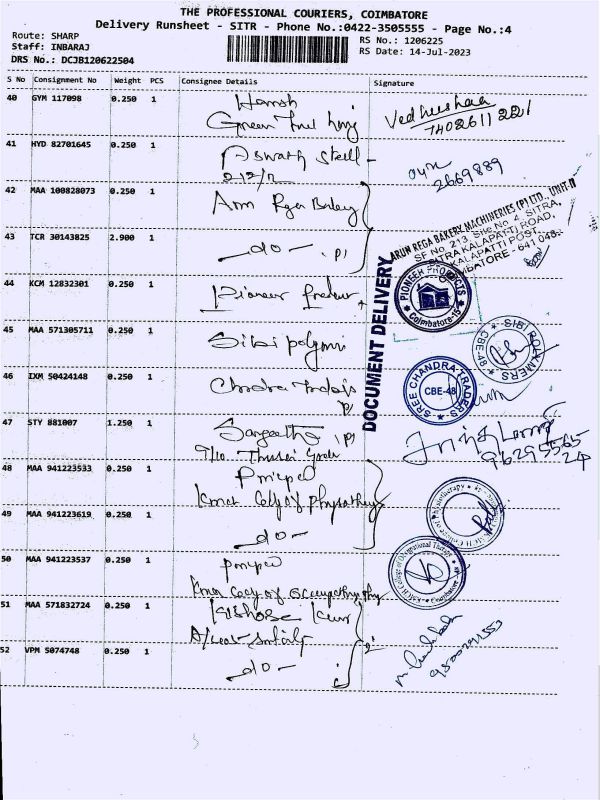 THE PROFESSIONAL COURIERS, COIMBATORE
Delivery Runsheet - SITR - Phone No.:0422-3505555 - Page No.:4
Route: SHARP
Staff: INBARAJ
DRS No.: DCJB120622504
RS No.: 1206225
RS Date: 14-Jul-2023
S No Consignment No Weight PCS Consignee Details Signature
40 GYM 117098 0.250 1 Harish
Green
Vedhushaa
7402611221
41 HYD 82701645 0.250 1 Aswath Steell
2669889
42 MAA 100828073 0.250 1 Arn Rega Bakey
43 TCR 30143825 2.900 1 -do- (P)
ARUN REGA BAKERY MACHINERIES (P) LTD., UNIT-II
SF No. 213, Site No. 4, SITRA,
SITRA KALAPATTI ROAD,
KALAPATTI POST,
COIMBATORE - 641 048.
DOCUMENT DELIVERY
44 KCM 12832301 0.250 1 Pioneer
PIONEER PRODUCTS
Coimbatore-15
45 MAA 571305711 0.250 1 Sibi polymri
SIBI POLYMERS
CBE-48
46 IXM 50424148 0.250 1 Chandra Trades
SREE CHANDRA TRADERS
CBE-48
47 STY 881007 1.250 1 Sangeetha (P)
9629556524
48 MAA 941223533 0.250 1
Kmct Coly of Physiothepy
49 MAA 941223619 0.250 1 -do-
50 MAA 941223537 0.250 1
Kmct Coly of
College of Occupational Therapy
Coimbatore
51 MAA 571832724 0.250 1 Kishore Kur
52 VPM 5074748 0.250 1 -do-
9500291553